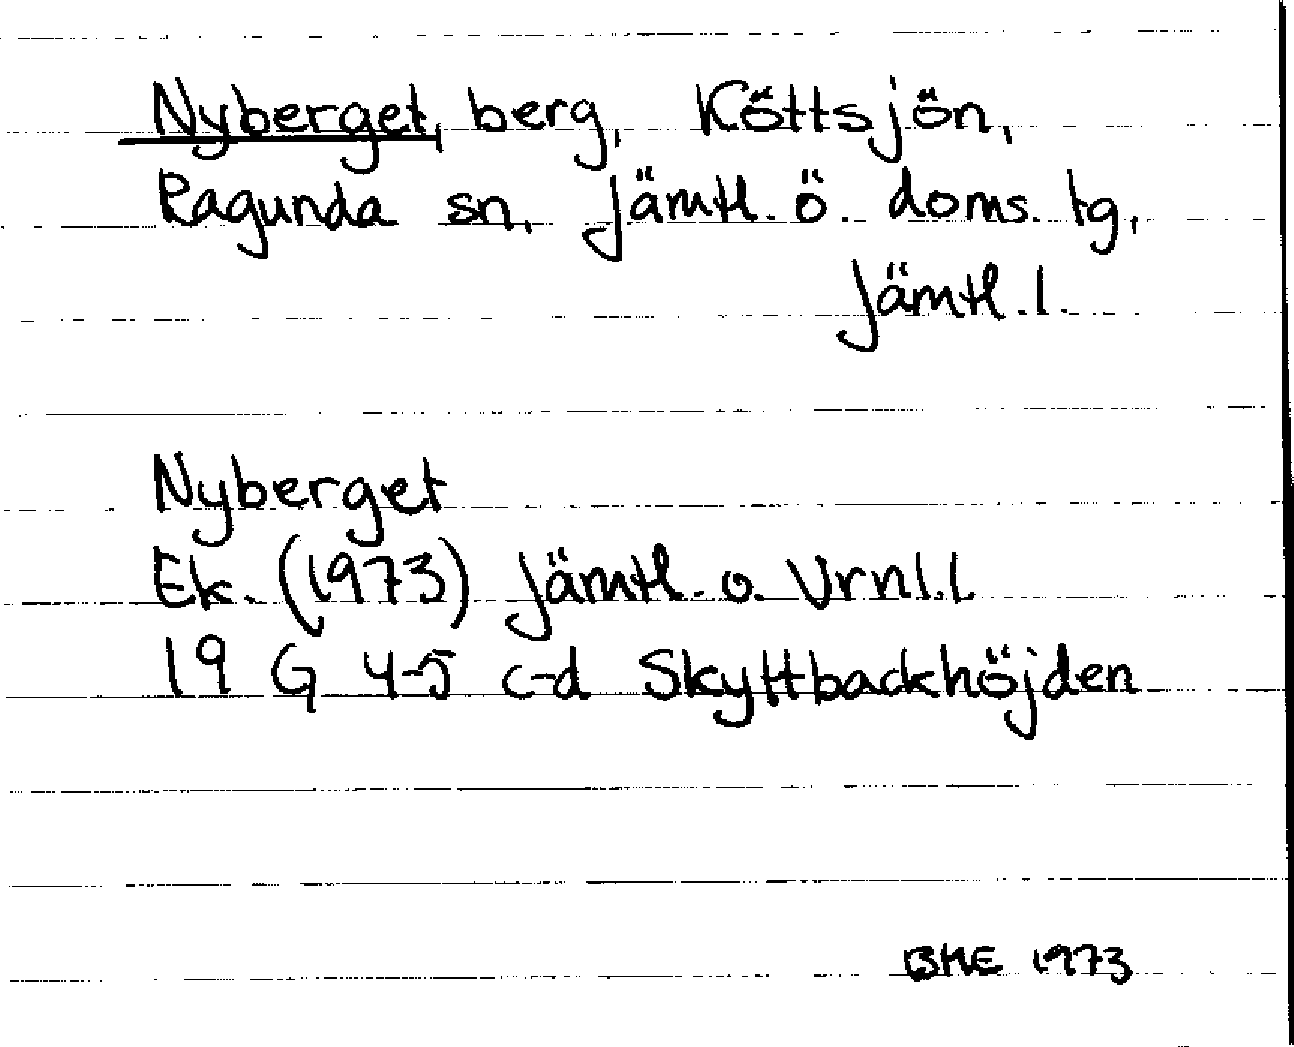 Nyberget, berg, Köttsjön,
Ragunda sn, Jämtl. ö. doms. tg,
Jämtl. l.
Nyberget
Ek. (1973) Jämtl. o. Vrnl. l
19 G 4-5 c-d Skyttbackhöjden
BME 1973